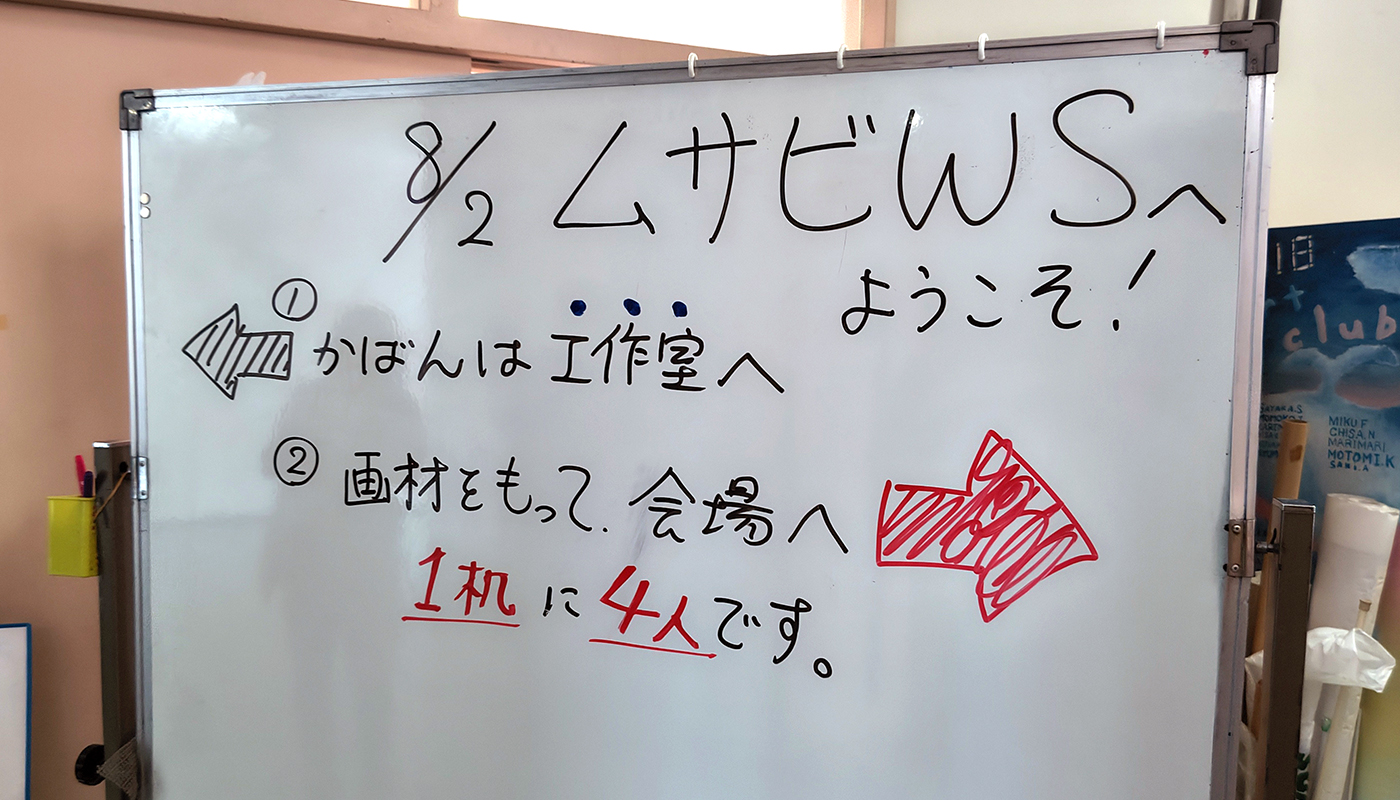 8/2 ムサビWSへ
ようこそ!
① かばんは工作室へ
② 画材をもって、会場へ
1机に4人です。
18
club
MIKU F
CHISA.N
MARIMARI
MOTOMI.K